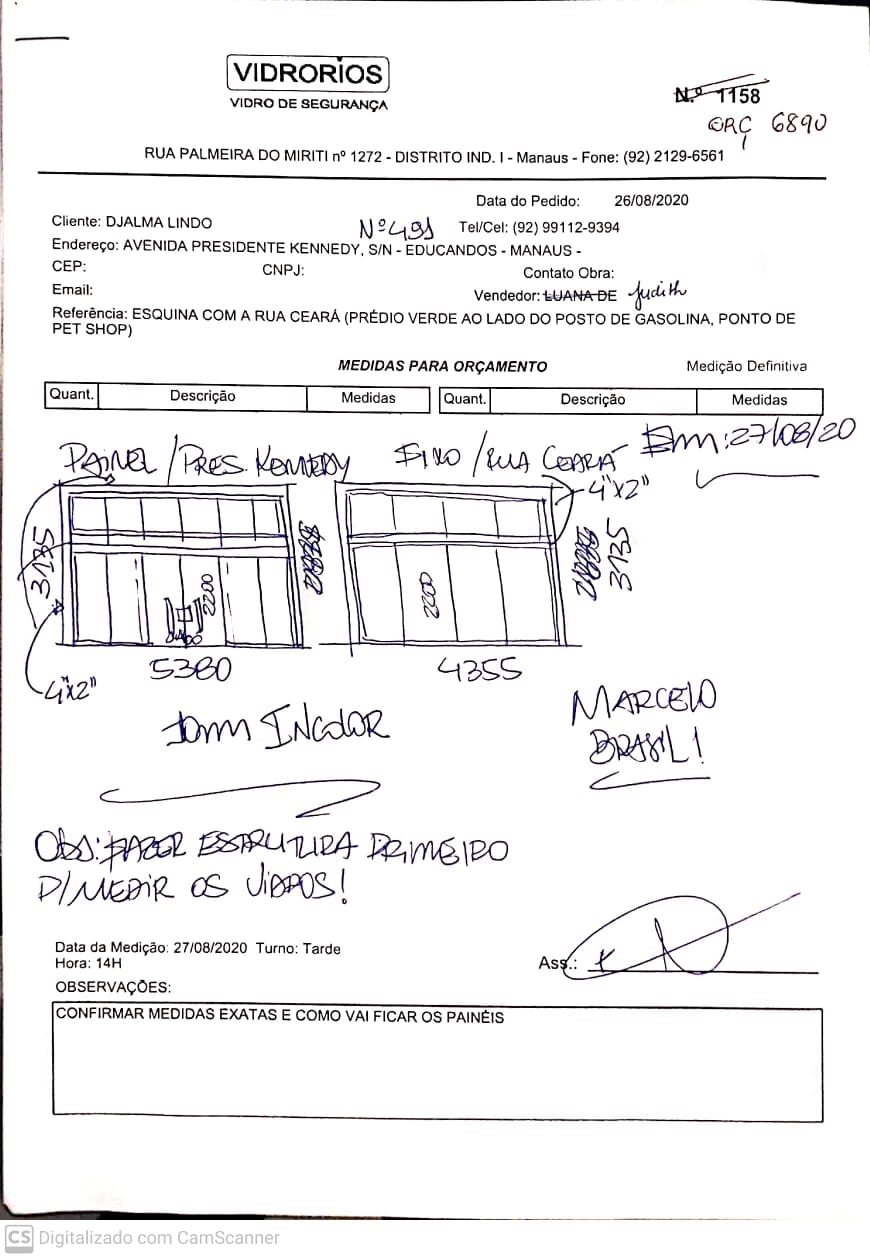 VIDRORIOS
VIDRO DE SEGURANÇA
N.º 1158
ORÇ 6890
RUA PALMEIRA DO MIRITI nº 1272 - DISTRITO IND. I - Manaus - Fone: (92) 2129-6561
Data do Pedido: 26/08/2020
Cliente: DJALMA LINDO Nº 491 Tel/Cel: (92) 99112-9394
Endereço: AVENIDA PRESIDENTE KENNEDY, S/N - EDUCANDOS - MANAUS -
CEP: CNPJ: Contato Obra:
Email: Vendedor: LUANA DE Judith
Referência: ESQUINA COM A RUA CEARÁ (PRÉDIO VERDE AO LADO DO POSTO DE GASOLINA, PONTO DE
PET SHOP)
MEDIDAS PARA ORÇAMENTO Medição Definitiva
Quant. Descrição Medidas Quant. Descrição Medidas
Em: 27/08/20
PAINEL / PRES. KENNEDY FIXO / RUA CEARÁ
4"x2"
3135 2200 2200 3135
5380 4355
4"x2"
10mm INCOLOR
MARCELO
BRASIL!
Obs: FAZER ESTRUTURA PRIMEIRO
P/ MEDIR OS VIDROS!
Data da Medição: 27/08/2020 Turno: Tarde
Hora: 14H
Ass.:
OBSERVAÇÕES:
CONFIRMAR MEDIDAS EXATAS E COMO VAI FICAR OS PAINÉIS
CS Digitalizado com CamScanner